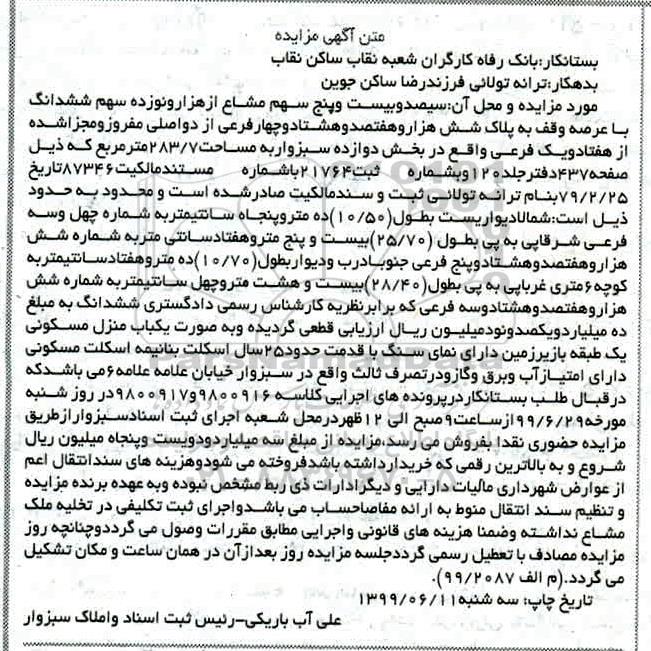 متن آگهی مزایده
بستانکار:بانک رفاه کارگران شعبه نقاب ساکن نقاب
بدهکار:ترانه تولائی فرزندرضا ساکن جوین
مورد مزایده و محل آن:سیصدوبیست وپنج سهم مشاع ازهزارونوزده سهم ششدانگ
با عرصه وقف به پلاک شش هزاروهفتصدوهشتادوچهارفرعی از دواصلی مفروزومجزاشده
از هفتادویک فرعی واقع در بخش دوازده سبزواربه مساحت۲۸۳/۷مترمربع که ذیل
صفحه۴۳۷دفترجلد۱۲۰وبشماره ثبت۲۱۷۶۴باشماره مستندمالکیت۸۷۳۴۶تاریخ
۷۹/۲/۲۵بنام ترانه تولائی ثبت و سندمالکیت صادرشده است و محدود به حدود
ذیل است:شمالادیواریست بطول(۱۰/۵۰)ده متروپنجاه سانتیمتربه شماره چهل وسه
فرعی شرقاپی به پی بطول (۲۵/۷۰)بیست و پنج متروهفتادسانتی متربه شماره شش
هزاروهفتصدوهشتادوپنج فرعی جنوبادرب ودیواربطول(۱۰/۷۰)ده متروهفتادسانتیمتربه
کوچه۶متری غرباپی به پی بطول(۲۸/۴۰)بیست و هشت متروچهل سانتیمتربه شماره شش
هزاروهفتصدوهشتادوسه فرعی که برابرنظریه کارشناس رسمی دادگستری ششدانگ به مبلغ
ده میلیاردویکصدونودمیلیون ریال ارزیابی قطعی گردیده وبه صورت یکباب منزل مسکونی
یک طبقه بازیرزمین دارای نمای سنگ با قدمت حدود۲۵سال اسکلت بنانیمه اسکلت مسکونی
دارای امتیازآب وبرق وگازودرتصرف ثالث واقع در سبزوار خیابان علامه علامه۶می باشدکه
درقبال طلب بستانکاردرپرونده های اجرایی کلاسه ۹۸۰۰۹۱۶و۹۸۰۰۹۱۷در روز شنبه
مورخه۹۹/۶/۲۹ازساعت۹صبح الی ۱۲ظهردرمحل شعبه اجرای ثبت اسنادسبزوارازطریق
مزایده حضوری نقدا بفروش می رسد.مزایده از مبلغ سه میلیاردودویست وپنجاه میلیون ریال
شروع و به بالاترین رقمی که خریدارداشته باشدفروخته می شودوهزینه های سندانتقال اعم
از عوارض شهرداری مالیات دارایی و دیگرادارات ذی ربط مشخص نبوده وبه عهده برنده مزایده
و تنظیم سند انتقال منوط به ارائه مفاصاحساب می باشدواجرای ثبت تکلیفی در تخلیه ملک
مشاع نداشته وضمنا هزینه های قانونی واجرایی مطابق مقررات وصول می گرددوچنانچه روز
مزایده مصادف با تعطیل رسمی گرددجلسه مزایده روز بعدازآن در همان ساعت و مکان تشکیل
می گردد.(م الف ۹۹/۲۰۸۷).
تاریخ چاپ: سه شنبه۱۳۹۹/۰۶/۱۱
علی آب باریکی-رئیس ثبت اسناد واملاک سبزوار